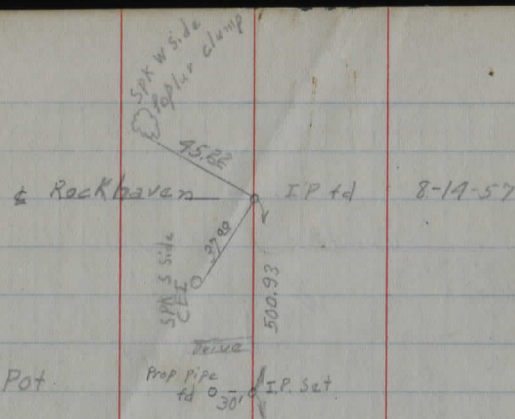 SPK W Side
Poplar clump
45.82
℄ Rockhaven
I P fd
8-14-57
SPK S side
CEI
500.93
Drive
Prop pipe
fd
30'
I.P. Set
Pot